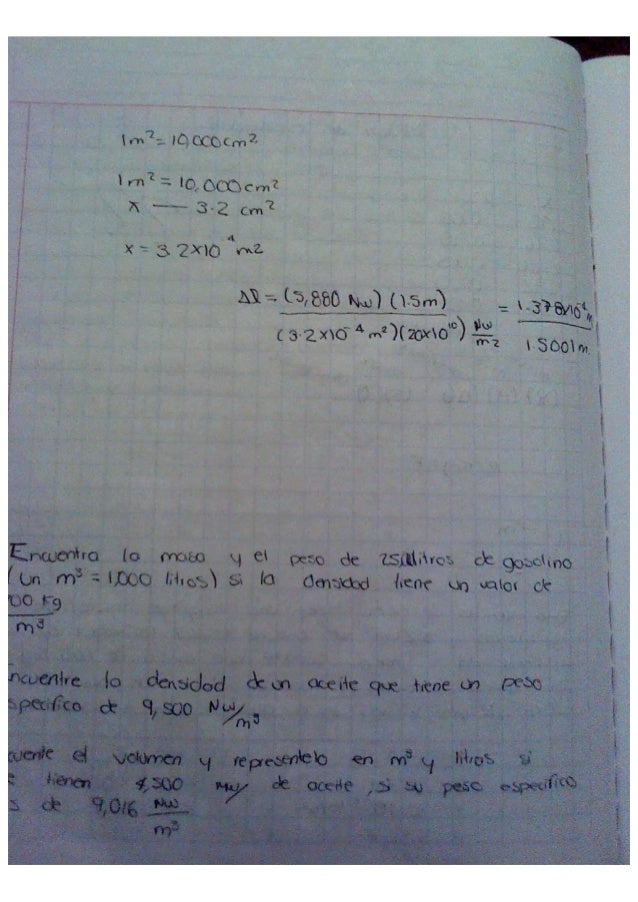 1m²= 10,000cm²
1m² = 10,000cm²
x — 3.2 cm²
x = 3.2x10⁻⁴ m2
Δl = (5,880 Nw) (1.5m) = 1.378x10⁻⁴ m
(3.2x10⁻⁴ m²)(20x10¹⁰) Nw/m2 1.5001m.
Encuentra la masa y el peso de litros de gasolina
(un m³ = 1,000 litros) si la densidad tiene un valor de
00 kg
m³
ncuentre la densidad de un aceite que tiene un peso
specifico de 9,500 Nw/m³
cuente el volumen y representelo en m³ y litros si
e tienen 4,500 Nw de aceite, si su peso especifico
s de 9,016 Nw
m³